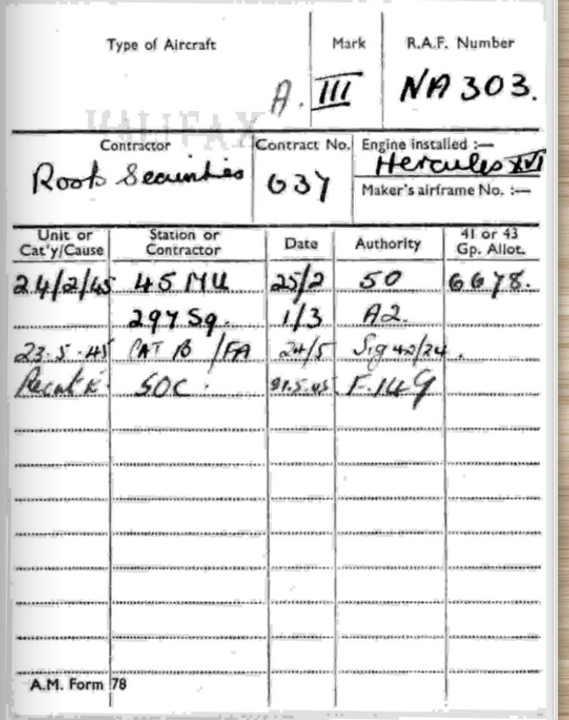 Type of Aircraft Mark R.A.F. Number
A. III NA 303.
HALIFAX
Contractor Contract No. Engine installed :—
Roots Securities 637 Hercules XVI
Maker's airframe No. :—
Unit or Cat'y/Cause Station or Contractor Date Authority 41 or 43 Gp. Allot.
24/2/45 45 MU 25/2 50 6678.
297 Sq. 1/3 A2.
23.5.45 CAT B /FA 24/5 Sig 42/24.
Recat E SOC. 31.5.45 F.149
A.M. Form 78